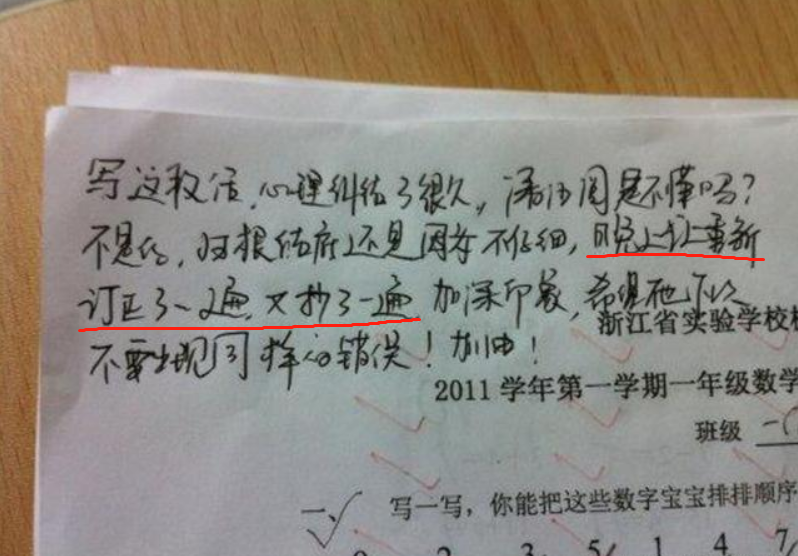 写这段话,心里纠结了很久,潘沛润是不懂吗?
不是的,归根结底还是因为不仔细,晚上让重新
订正了一遍,又抄了一遍,加深印象,希望他下次
不要出现同样的错误!加油!
浙江省实验学校
2011 学年第一学期一年级数学
班级 一(
一、写一写,你能把这些数字宝宝排排顺序
2 3 5 1 4 7